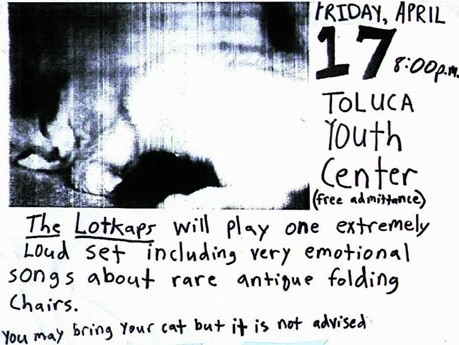 FRIDAY, APRIL
17 8:00p.m.
TOLUCA
Youth
Center
(free admittance)
The Lotkaps will play one extremely
Loud set including very emotional
songs about rare antique folding
Chairs.
You may bring your cat but it is not advised